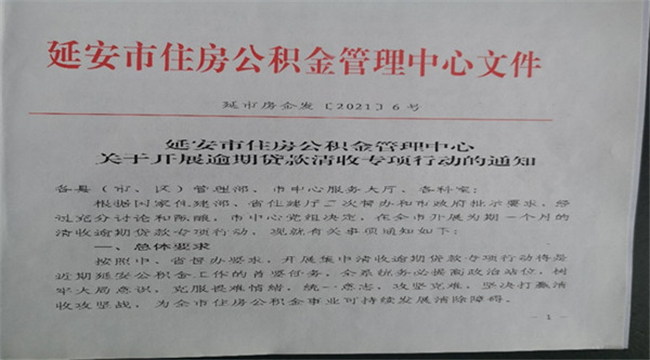 延安市住房公积金管理中心文件
延市房金发〔2021〕6号
延安市住房公积金管理中心
关于开展逾期贷款清收专项行动的通知
各县（市、区）管理部、市中心服务大厅、各科室：
根据国家住建部、省住建厅二次督办和市政府批示要求，经
过充分讨论和酝酿，市中心党组决定，在全市开展为期一个月的
清收逾期贷款专项行动，现就有关事项通知如下：
一、总体要求
按照中、省督办要求，开展集中清收逾期贷款专项行动将是
近期延安公积金工作的首要任务，全系统务必提高政治站位，树
牢大局意识，克服畏难情绪，统一意志，攻坚克难，坚决打赢清
收攻坚战，为全市住房公积金事业可持续发展清除障碍。
－1－